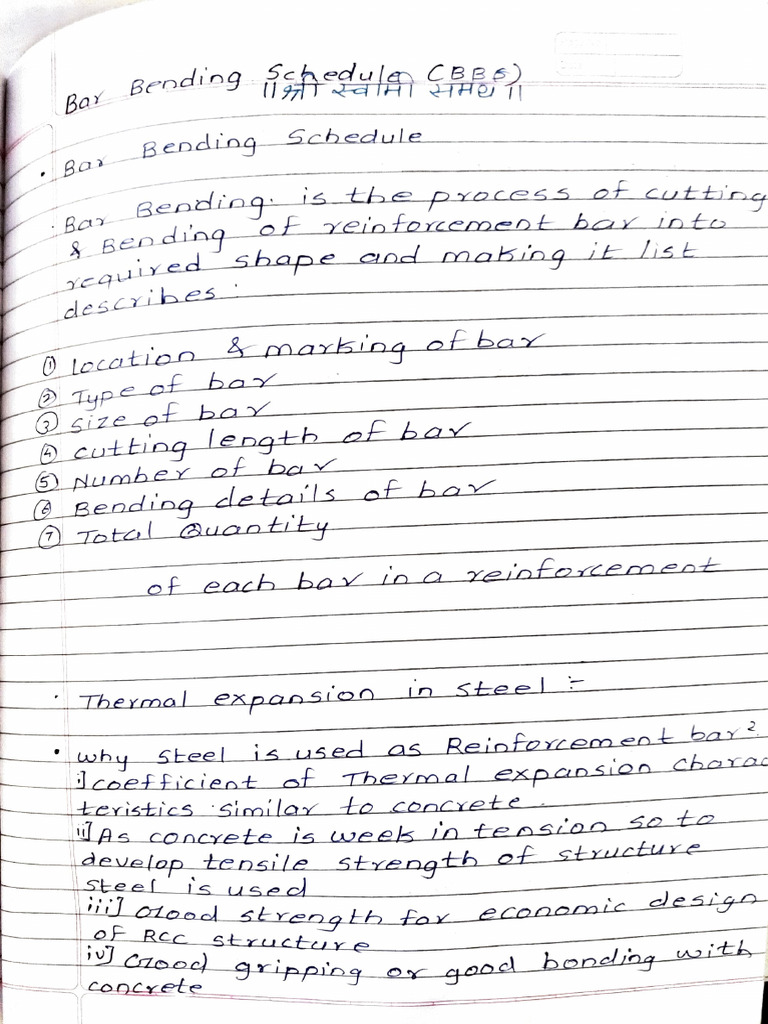 Bar Bending Schedule (BBS)
॥श्री स्वामी समर्थ॥
• Bar Bending Schedule
Bar Bending. is the process of cutting
& Bending of reinforcement bar into
required shape and making it list
describes :
① location & marking of bar
② Type of bar
③ size of bar
④ cutting length of bar
⑤ Number of bar
⑥ Bending details of bar
⑦ Total Quantity
of each bar in a reinforcement
• Thermal expansion in steel :-
• why steel is used as Reinforcement bar?
i] coefficient of Thermal expansion charac
teristics similar to concrete.
ii] As concrete is week in tension so to
develop tensile strength of structure
steel is used
iii] Good strength for economic design
of RCC structure
iv] Good gripping or good bonding with
concrete